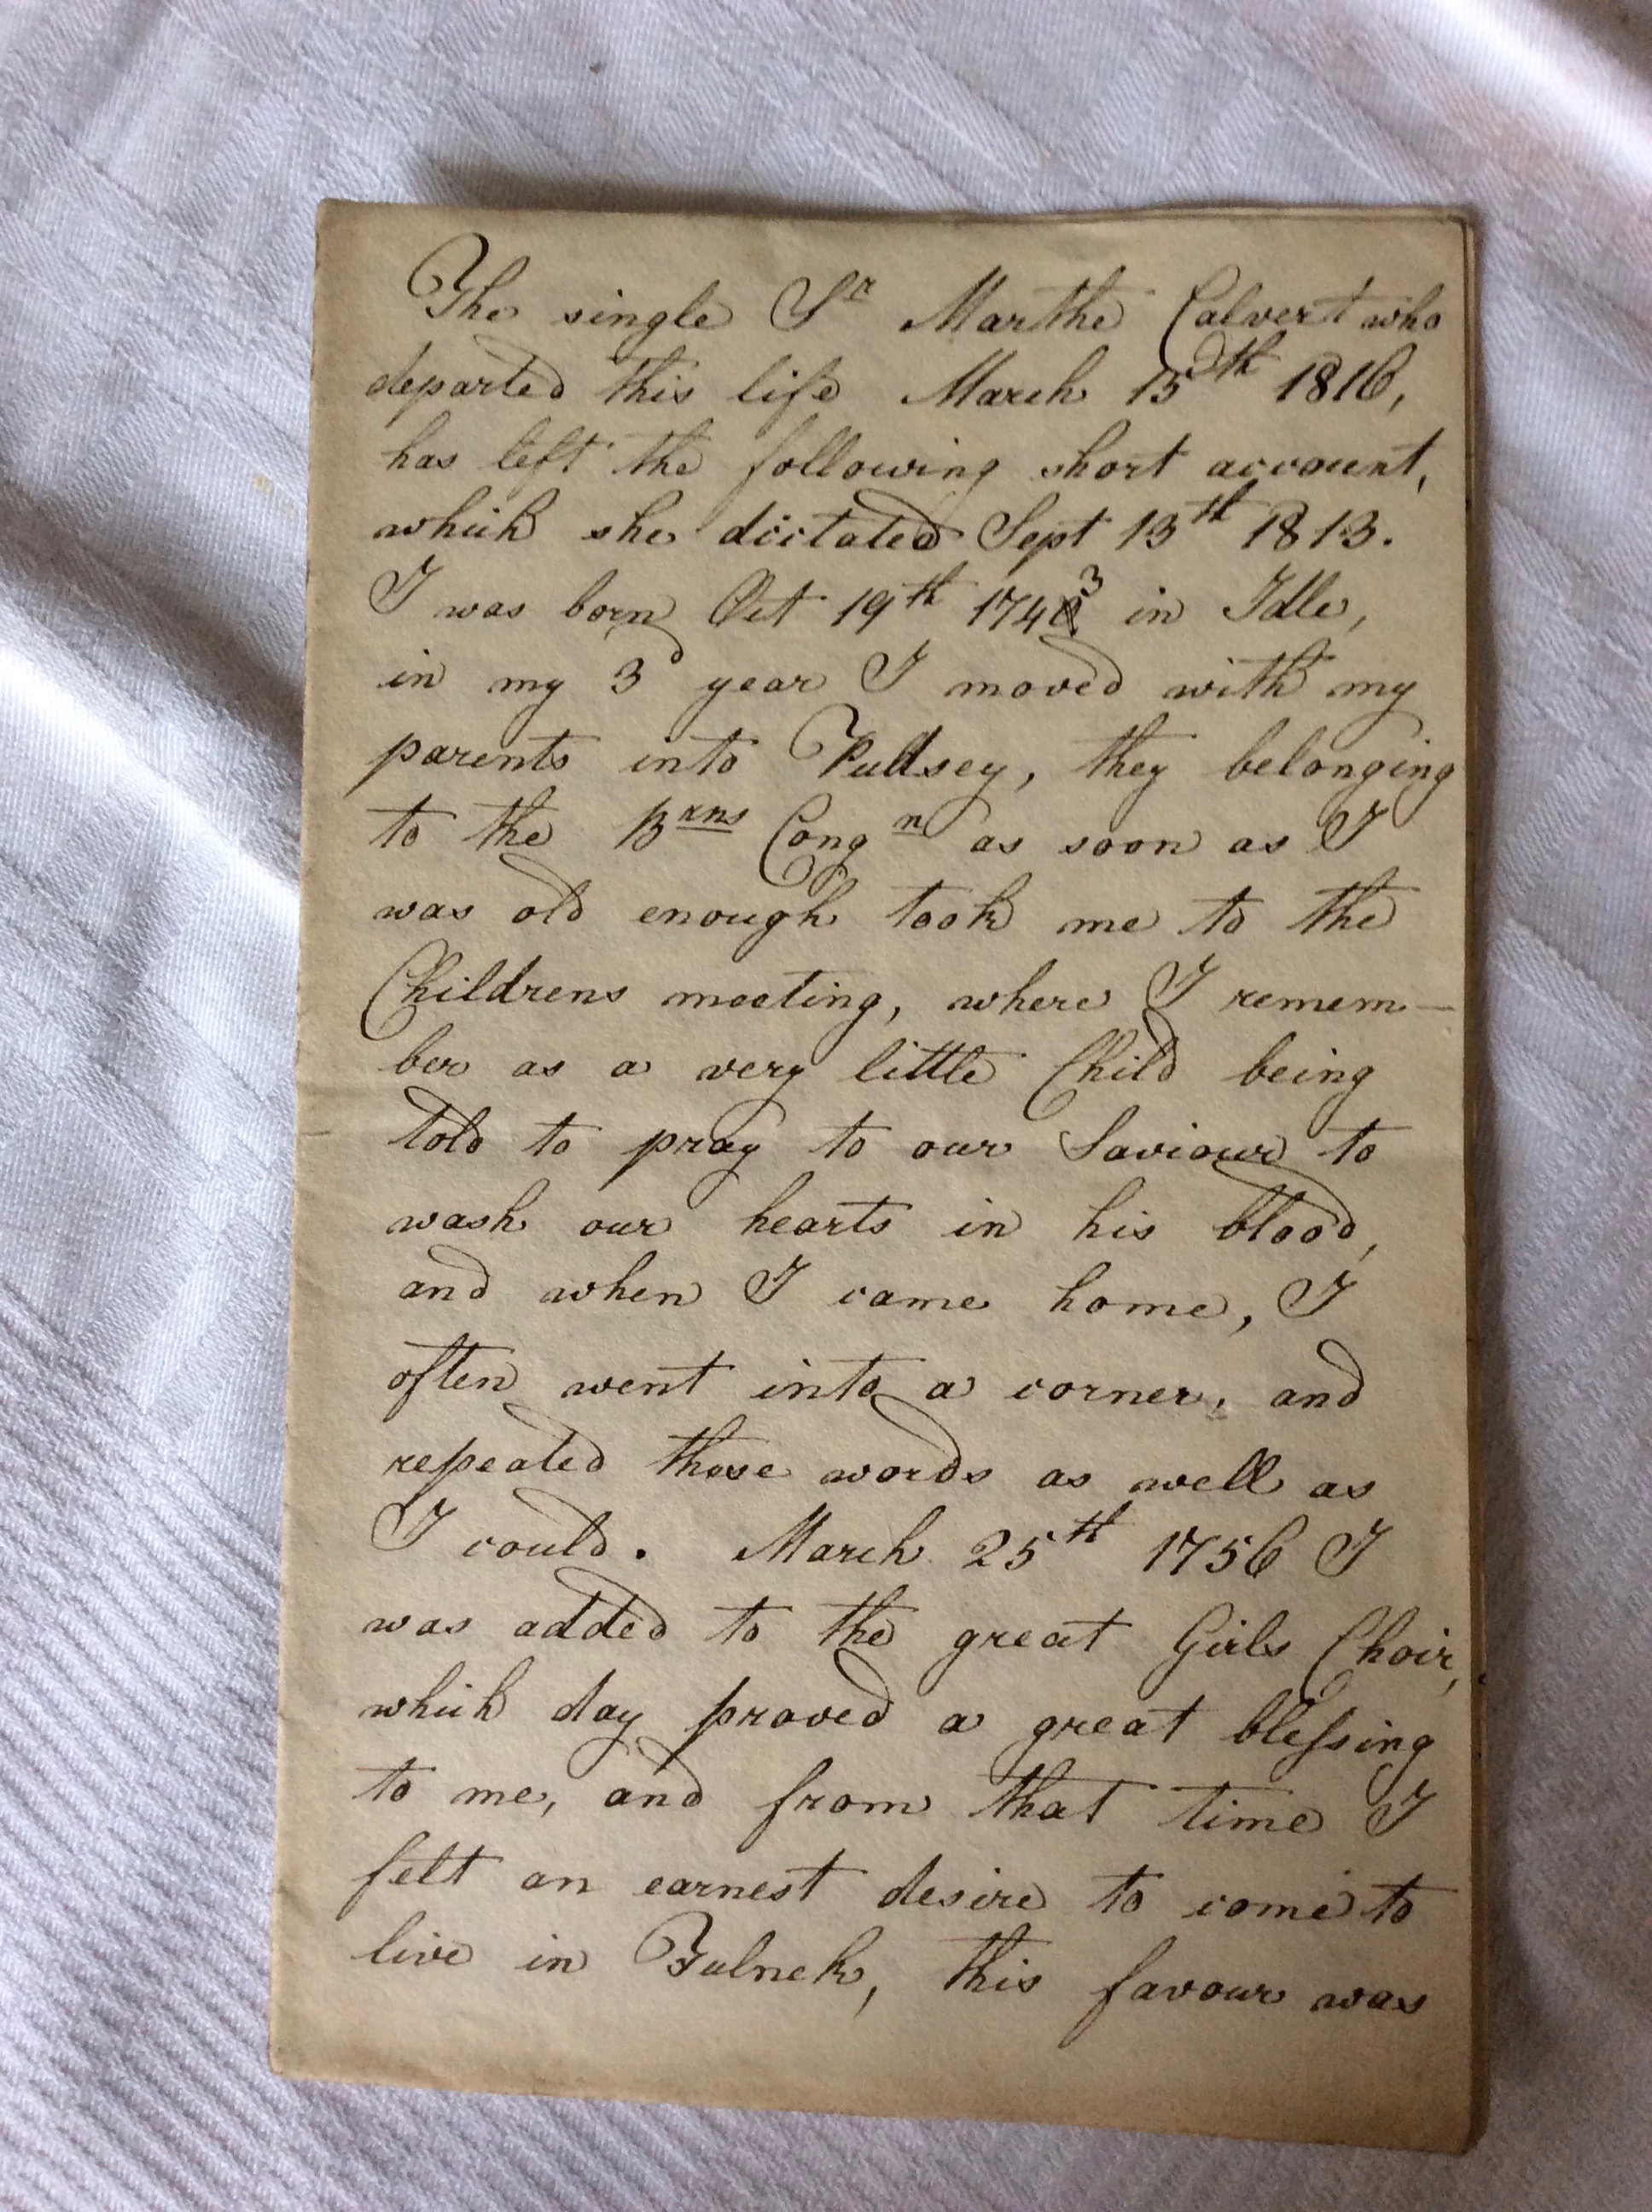 The single Sr Marthe Calvert who
departed this life March 15th 1816,
has left the following short account,
which she dictated Sept 13th 1813.
I was born Oct 19th 1743 in Idle,
in my 3d year I moved with my
parents into Pudsey, they belonging
to the Brns Congn as soon as I
was old enough took me to the
Childrens meeting, where I remem-
ber as a very little Child being
told to pray to our Saviour to
wash our hearts in his blood,
and when I came home, I
often went into a corner, and
repeated those words as well as
I could. March 25th 1756 I
was added to the great Girls Choir,
which day proved a great blessing
to me, and from that time I
felt an earnest desire to come to
live in Fulnek, this favour was